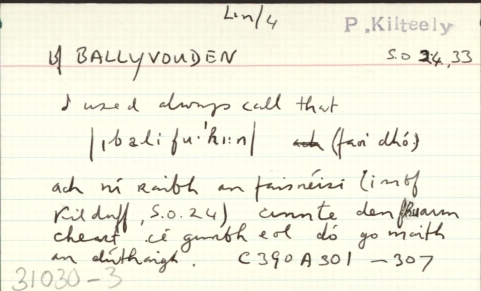 Lin/4
P. Kilteely
BALLYVOUDEN S.O 24,33
I used always call that
|ˌbɑli fuːˈhiːn| (faoi dhó)
ach ní raibh an faisnéisí (
Kilduff, S.O. 24) cinnte den fhuaim
cheart, cé gurbh eol dó go maith
an dúthaigh. C390A301 – 307
31030-3